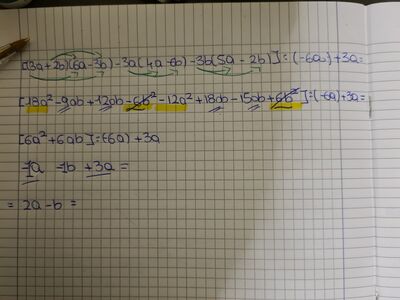 [(3a+2b)(6a-3b)-3a(4a-6b)-3b(5a-2b)]:(-6a)+3a=
[18a²-9ab+12ab-6b²-12a²+18ab-15ab+6b²]:(-6a)+3a=
[6a²+6ab]:(-6a)+3a
-1a -1b +3a =
= 2a-b =